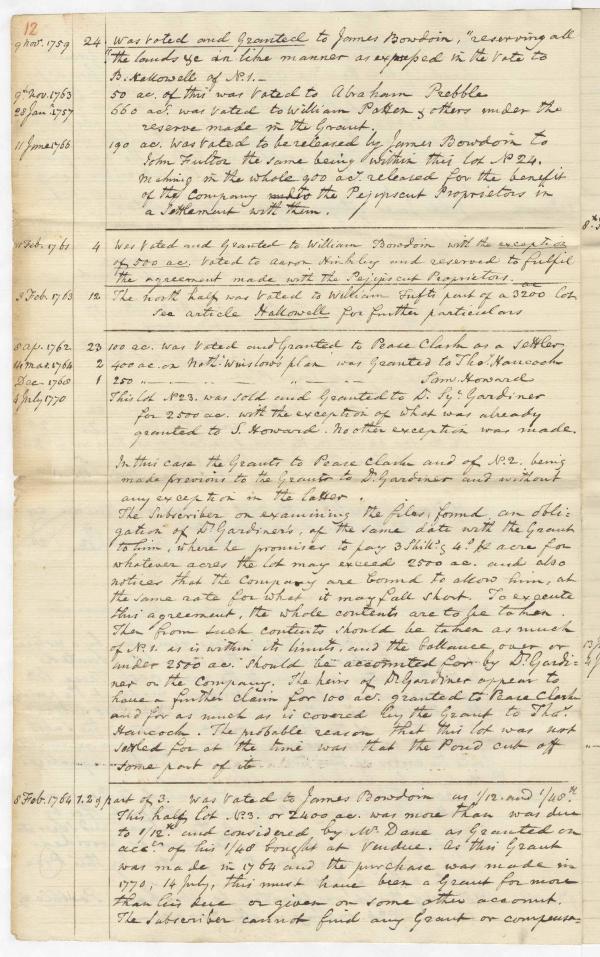 12
9 Nov. 1759 24 was Voted and Granted to James Bowdoin, "reserving all
"the lands &c in like manner as expressed in the Vote to
B. Hallowell of No. 1.—
9th Nov. 1763 50 ac. of this was Voted to Abraham Prebble
28 Jany. 1757 660 acs. was Voted to William Patten & others under the
reserve made in the Grant.
11 June 1766 190 ac. was Voted to be released by James Bowdoin to
John Fulton the same being within this lot No 24.
making in the whole 900 acs. released for the benefit
of the Company to the Pejepscut Proprietors in
a Settlement with them.
Feb. 1761 4 Was Voted and Granted to William Bowdoin with the exception
of 500 ac. Voted to Aaron Hinkley and reserved to fulfil
the agreement made with the Pejepscut Proprietors.
9 Feb. 1763 12 The north half was Voted to William Tufts part of a 3200 ac lot
see article Hallowell for further particulars
8 ap. 1762 23 100 ac. was Voted and Granted to Pease Clark as a Settler
14 mar. 1764 2 400 ac. on Nath. Winslow's plan was Granted to Thos. Hancock
Dec. 1768 1 250 " — " — Saml. Howard
4 July 1770 This lot No 23. was sold and Granted to D. Sylr. Gardiner
for 2500 ac. with the exception of what was already
granted to S. Howard. No other exception was made.
In this case the Grants to Pease Clark and of No. 2. being
made previous to the Grant to Dr. Gardiner and without
any exception in the latter.
The Subscriber on examining the files, found an obli-
gation of Dr. Gardiner's, of the same date with the Grant
to him, where he promises to pay 3 Shills. & 4d. P acre for
whatever acres the lot may exceed 2500 ac. and also
notices that the Company are bound to allow him, at
the same rate for what it may fall short. To execute
this agreement, the whole contents are to be taken.
Then from such contents should be taken as much
of No. 1. as is within its limits, and the ballance over or
under 2500 ac. should be accounted for by Dr. Gardi-
ner or the Company. The heirs of Dr. Gardiner appear to
have a further claim for 100 acs. granted to Pease Clark
and for as much as is covered by the Grant to Thos.
Hancock. The probable reason that this lot was not
settled for at the time was that the Pond cut off
some part of it
8 Feb. 1764 part of 3. was Voted to James Bowdoin as 1/12. and 1/48th.
This half lot No. 3. or 2400 ac. was more than was due
to 1/12th. and considered by Mr. Dane as Granted on
acct. of his 1/48 bought at Vendue. As this Grant
was made in 1764 and the purchase was made in
1770, 14 July, this must have been a Grant for more
than his due or given on some other account.
The Subscriber cannot find any Grant or compensa=